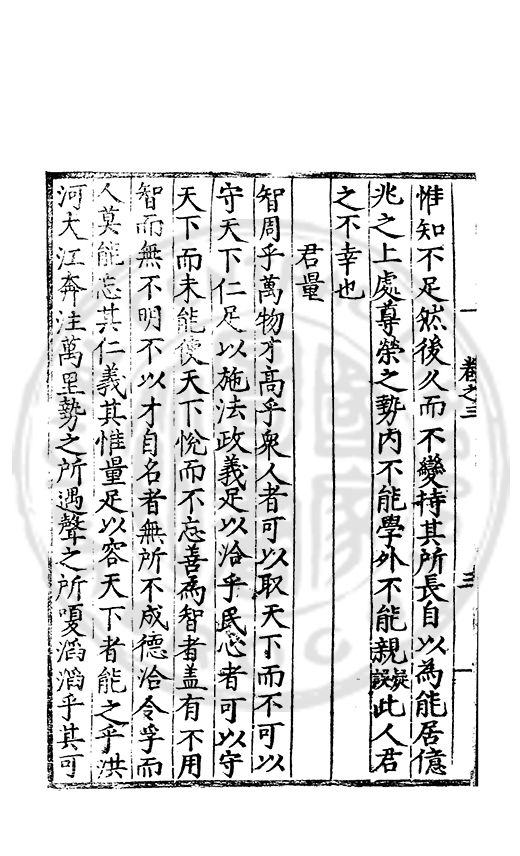 卷之三
三
惟知不足然後久而不變持其所長自以為能居億
兆之上處尊榮之勢內不能學外不能親疑誤此人君
之不幸也
君量
智周乎萬物才高乎衆人者可以取天下而不可以
守天下仁足以施法政義足以洽乎民心者可以守
天下而未能使天下悅而不忘善為智者盖有不用
智而無不明不以才自名者無所不成德洽令孚而
人莫能忘其仁義其惟量足以容天下者能之乎洪
河大江奔注萬里勢之所遇聲之所嗄滔滔乎其可